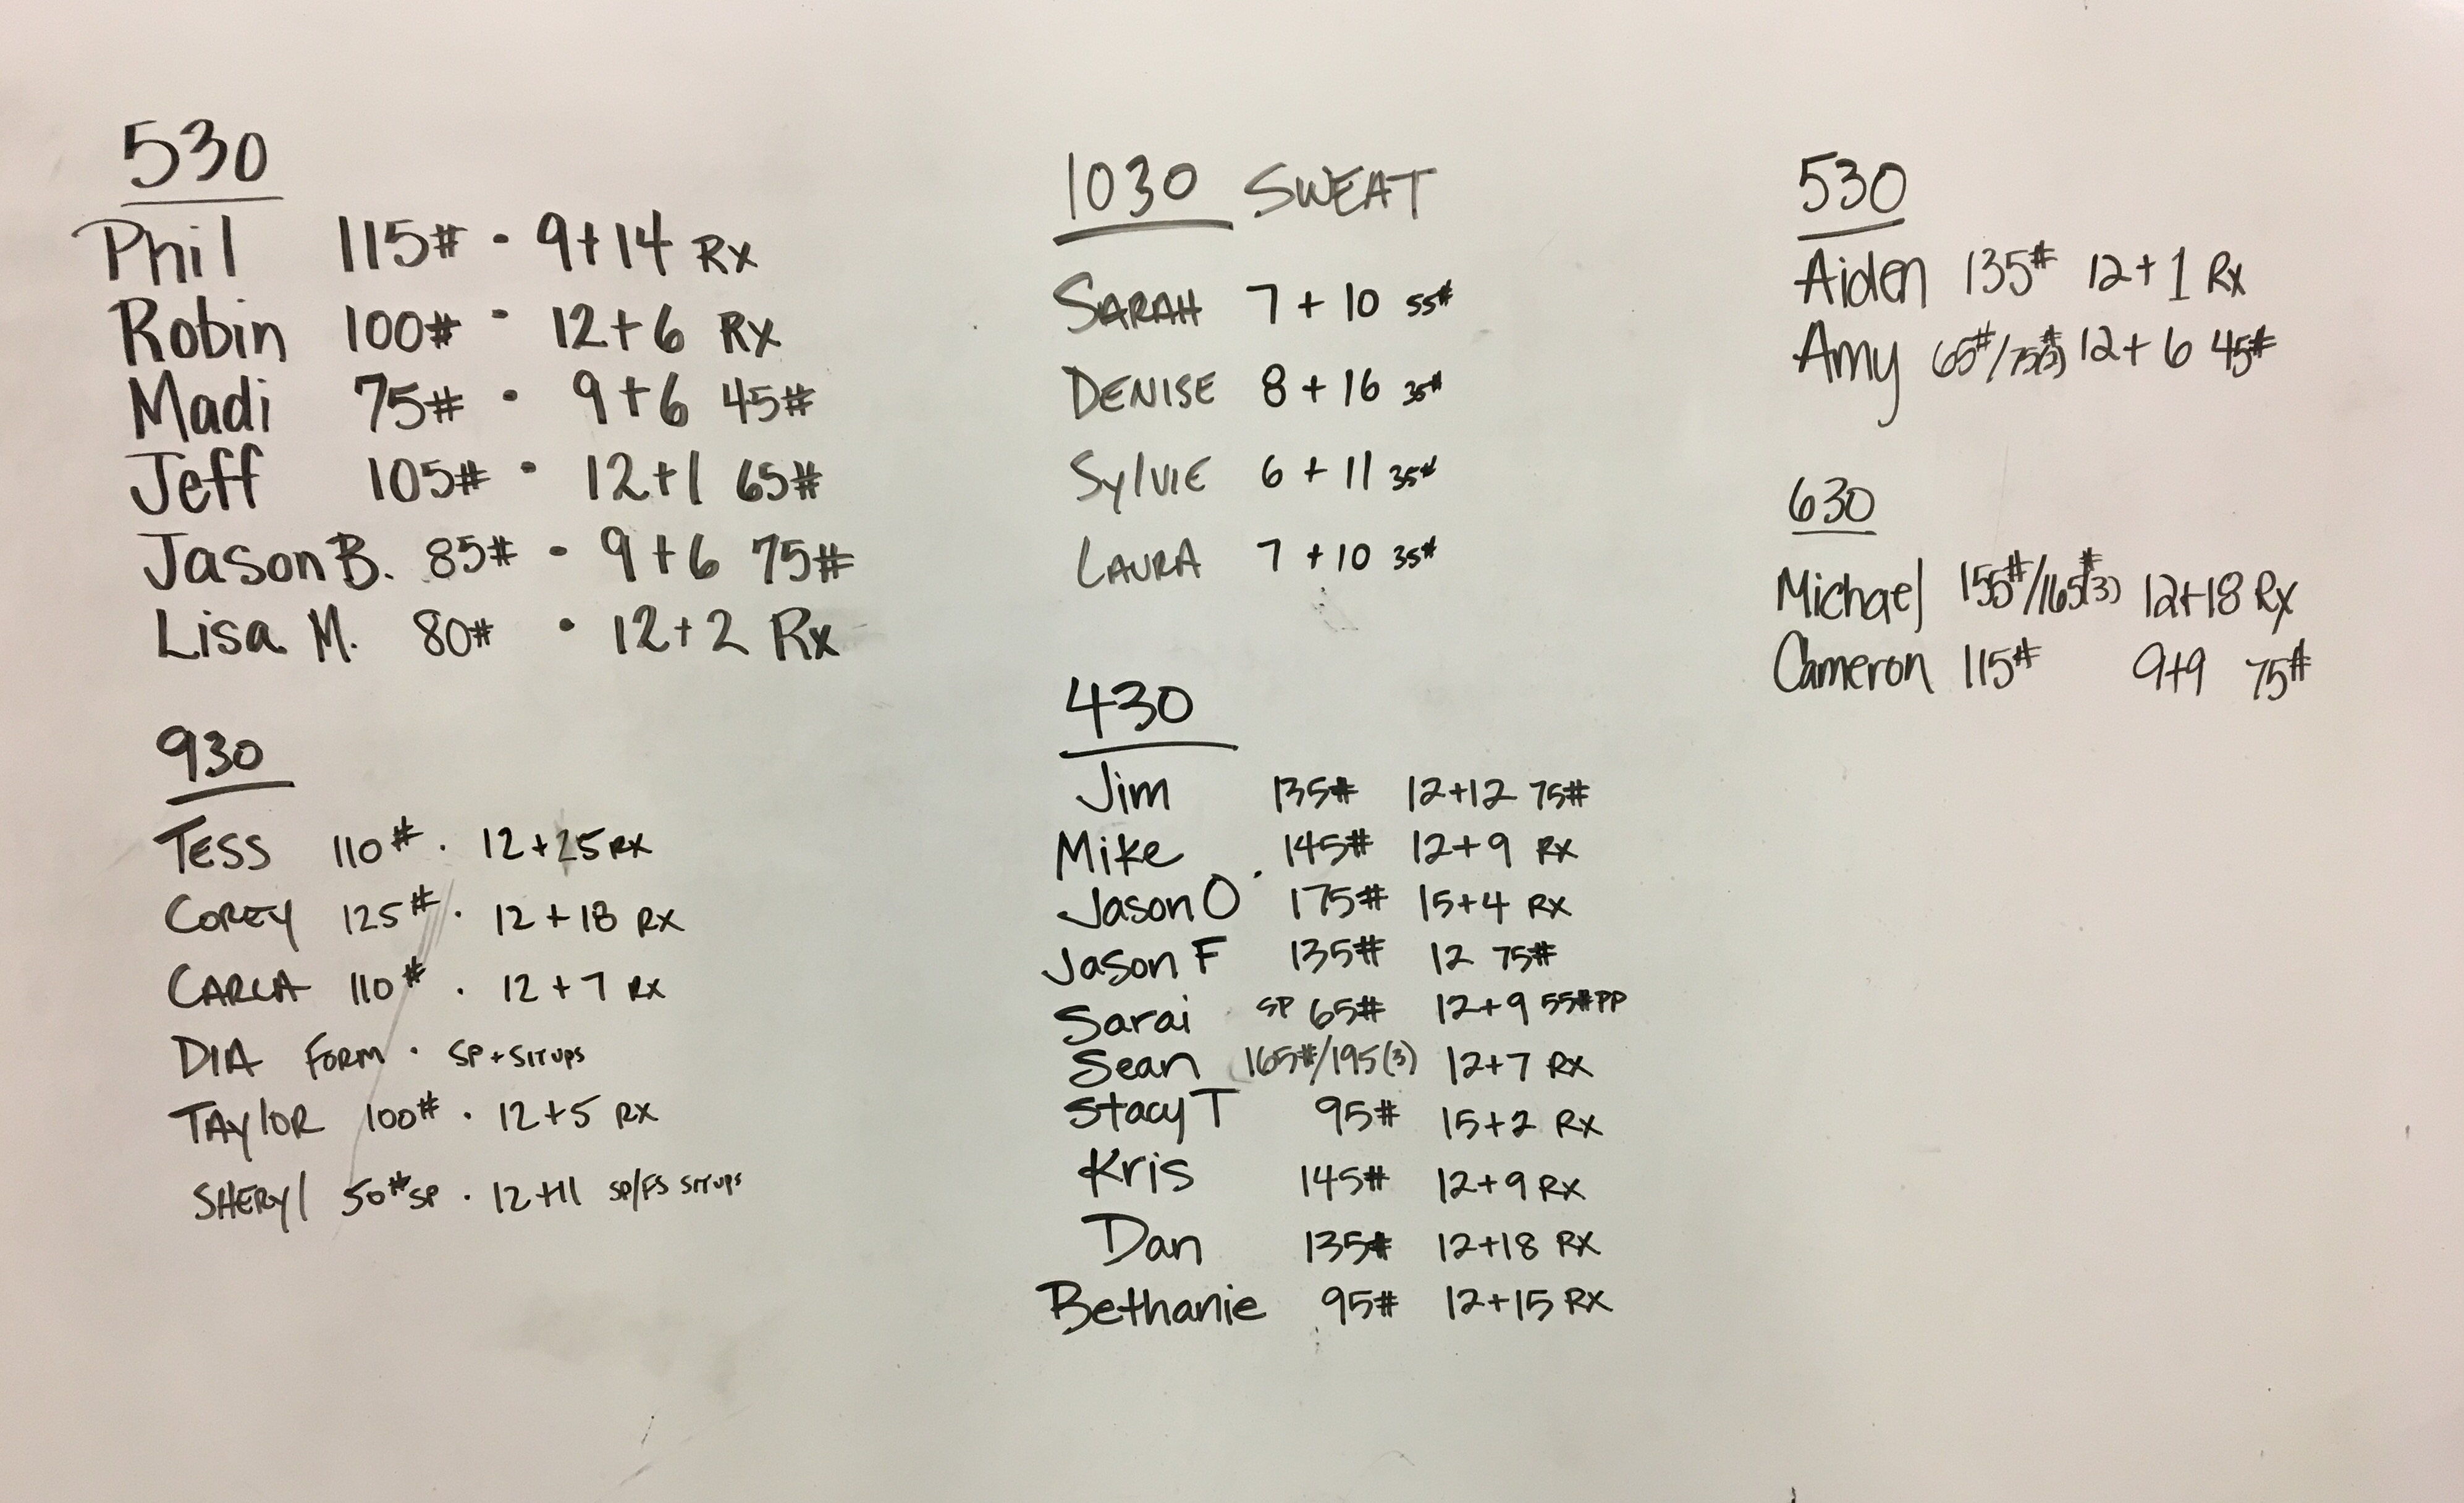 530
Phil 115# · 9+14 Rx
Robin 100# · 12+6 Rx
Madi 75# · 9+6 45#
Jeff 105# · 12+1 65#
Jason B. 85# · 9+6 75#
Lisa M. 80# · 12+2 Rx
930
TESS 110# · 12+25 RX
COREY 125# · 12+18 RX
CARLA 110# · 12+7 RX
DIA FORM · SP+SITUPS
TAYLOR 100# · 12+5 RX
SHERYL 50# SP · 12+11 SP/FS SITUPS
1030 SWEAT
SARAH 7+10 55#
DENISE 8+16 35#
SYLVIE 6+11 35#
LAURA 7+10 35#
430
Jim 135# 12+12 75#
Mike 145# 12+9 RX
Jason O 175# 15+4 RX
Jason F 135# 12 75#
Sarai SP 65# 12+9 55# PP
Sean 165#/195(3) 12+7 RX
Stacy T 95# 15+2 RX
Kris 145# 12+9 RX
Dan 135# 12+18 RX
Bethanie 95# 12+15 RX
530
Aiden 135# 12+1 Rx
Amy 65#/75#(3) 12+6 45#
630
Michael 155#/165#(3) 12+18 Rx
Cameron 115# 9+9 75#